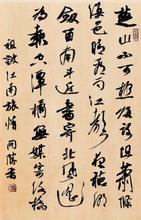 楚山不可極歸路但蕭條
海色晴看雨江聲夜聽潮
劍留南斗近書寄北風遙
為報空潭橘無媒寄洛橋
祖詠江南旅情 書